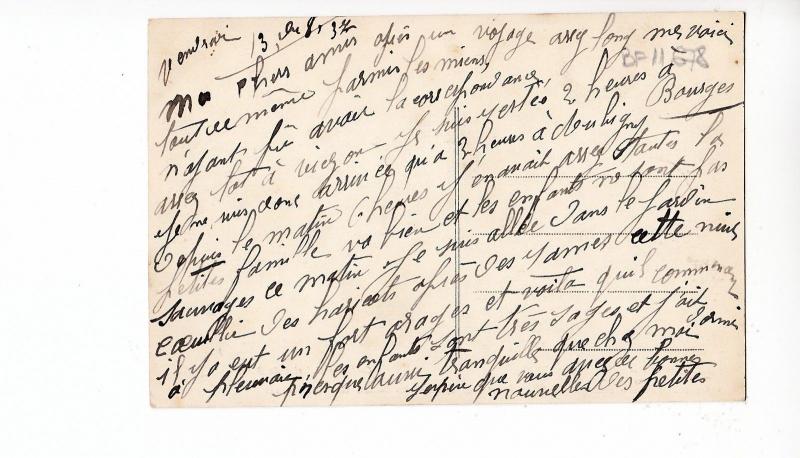 Vendredi 13, du 8. 32
Mes chers amis après un voyage assez long mes voici
BF 11 678
tout de même parmis les miens
n'ayant pu avoir la correspondance
assez tôt à vierzon je suis restée 2 heures à Bourges
je me suis donc arrivée qu'à 3 heures à
depuis le matin 6 heures j'en avait assez toutes la
petites famille va bien et les enfants ne sont pas
sauvages ce matin je suis allée dans le jardin
cueillir des haricots après des cette nuit
il y a eut un fort orages et voila qu'il commence
à pleuvoir les enfants sont très sages et j'ait dormis
presque aussi tranquille que chez moi
j'espère que vous avez de bonnes
nouvelles des petites